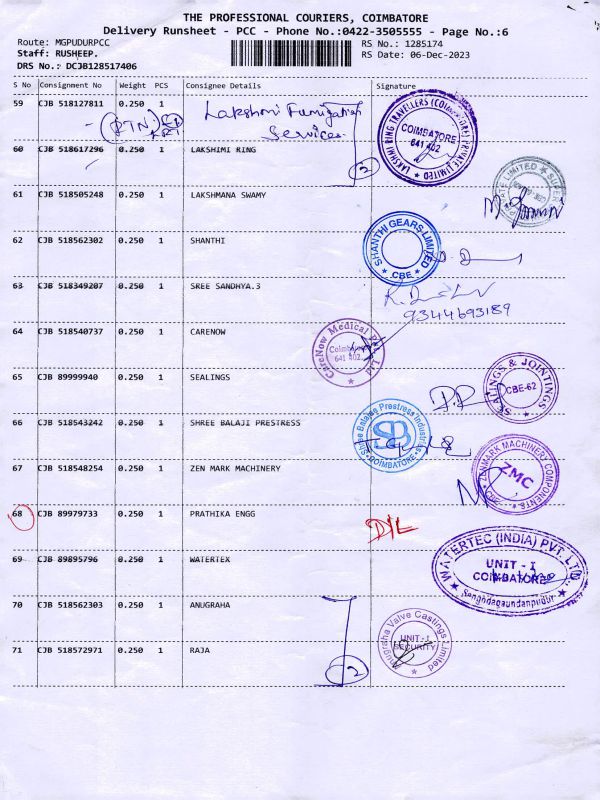 THE PROFESSIONAL COURIERS, COIMBATORE
Delivery Runsheet - PCC - Phone No.:0422-3505555 - Page No.:6
Route: MGPUDURPCC
RS No.: 1285174
Staff: RUSHEEP.
RS Date: 06-Dec-2023
DRS No.: DCJB128517406
S No Consignment No Weight PCS Consignee Details Signature
59 CJB 518127811 0.250 1 Lakshmi Fumigation
(RTN) Services
60 CJB 518617296 0.250 1 LAKSHIMI RING
LAKSHMI RING TRAVELLERS (COIMBATORE) PRIVATE LIMITED
COIMBATORE
641 402
2
61 CJB 518505248 0.250 1 LAKSHMANA SWAMY
62 CJB 518562302 0.250 1 SHANTHI
SHANTHI GEARS LIMITED
CBE
63 CJB 518349207 0.250 1 SREE SANDHYA.3
9344693189
64 CJB 518540737 0.250 1 CARENOW
CareNow Medical Pvt. Ltd
Coimbatore
641 402.
65 CJB 89999940 0.250 1 SEALINGS
SEALINGS & JOINTINGS
CBE-62
66 CJB 518543242 0.250 1 SHREE BALAJI PRESTRESS
Shree Balajee Prestress Industries
SB
COIMBATORE
67 CJB 518548254 0.250 1 ZEN MARK MACHINERY
ZENMARK MACHINERY COMPONENTS
ZMC
68 CJB 89979733 0.250 1 PRATHIKA ENGG
D/L
69 CJB 89895796 0.250 1 WATERTEX
WATERTEC (INDIA) PVT. LTD.
UNIT - I
COIMBATORE
70 CJB 518562303 0.250 1 ANUGRAHA
Anugraha Valve Castings Limited
UNIT - I
SECURITY
71 CJB 518572971 0.250 1 RAJA
2